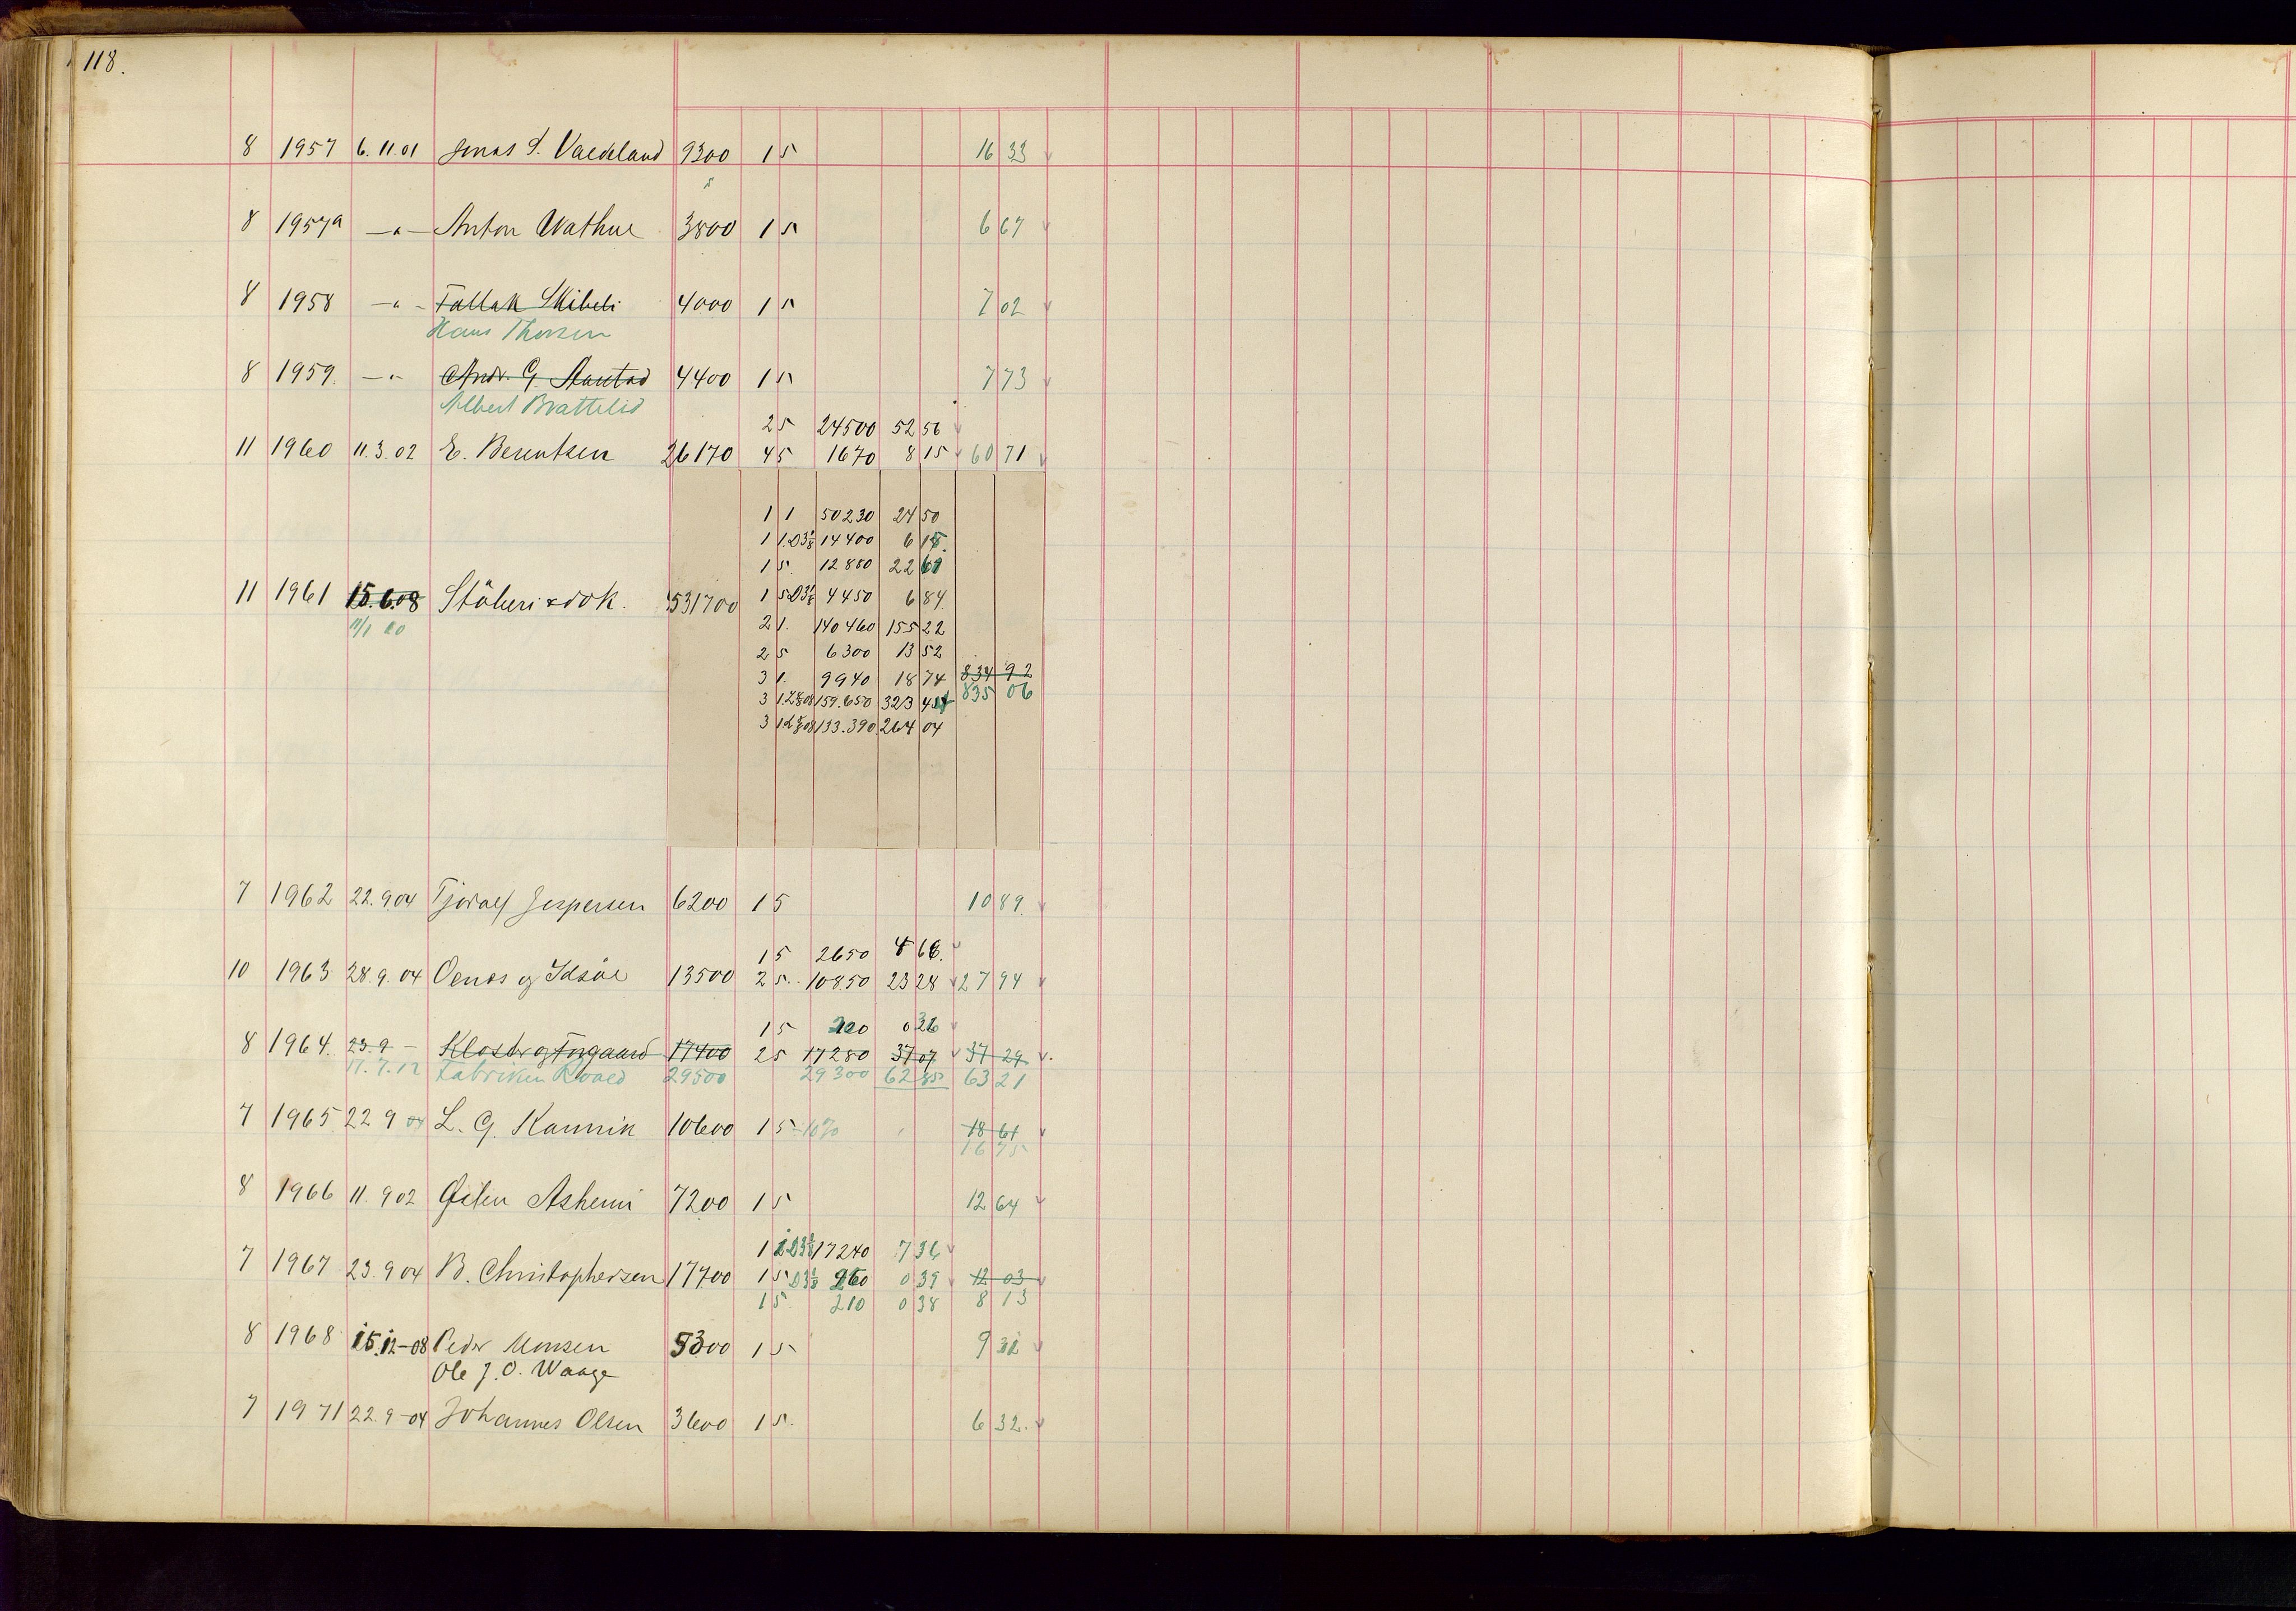 118.
8 1957 6.11.01 Jonas S. Vaeland 9300 1 5 16 33
8 1957a —"— Anton Wathne 3800 1 5 6 67
8 1958 —"— Tallak Skibeli 4000 1 5 7 02
Hans Thorsen
8 1959. —"— Andr. G. Austad 4400 1 5 7 73
Albert Brattelid
2 5 24500 52 56
11 1960 11.3.02 E. Berentsen 26170 4 5 1670 8 15 60 71
1 1 50230 24 50
1 1.D3⅛ 14400 6 15.
1 5. 12880 22 61
11 1961 15.6.08 Stöberi & dok. 531700 1 5.D3⅛ 4450 6 84
2 1. 140460 155 22
2 5 6300 13 52
3 1. 9940 18 74 834 92
3 159.650 323 835 06
3 133.390 264 04
7 1962 22.9.04 Tjoralf Jespersen 6200 1 5 10 89.
1 5 2650 4 66.
10 1963 28.9.04 Oenes og Idsöe 13500 2 5.. 10850 23 28 27 94
1 5 0 36
8 1964. 23.9 — Kloster og Torgaard 17400 2 5 17280 37 07 37 29
11.7.12 Fabriken Roald 29500 29300 62 85 63 21
7 1965 22 9 04 L. G. Kannik 10600 1 5 -10% 18 61
16 75
8 1966 11.9 02 Osten Asheim 7200 1 5 12 64
1 D3⅛ 17240 7 36
7 1967 23.9 04 B. Christophersen 17700 1 5 D3⅛ 0 39 12 03
1 5 210 0 38 8 13
8 1968 15.12-08 Peder Monsen 5300 1 5 9 31
Ole J. O. Waage
7 1971 22.9-04 Johannes Olsen 3600 1 5. 6 32.